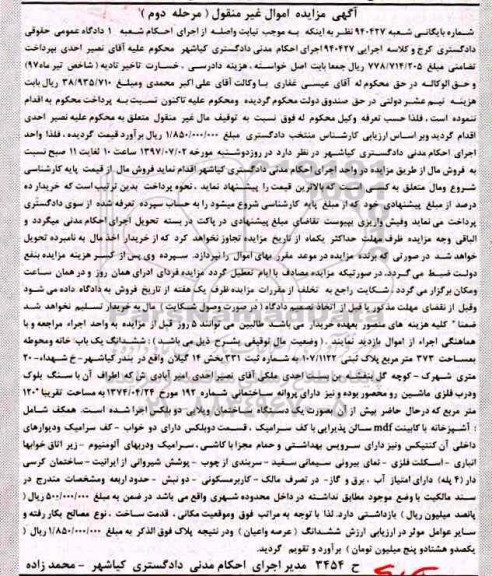 آگهی مزایده اموال غیر منقول ( مرحله دوم )
شماره بایگانی شعبه ۹۴۰۴۲۷ نظر به اینکه به موجب نیابت واصله از اجرای احکام شعبه ۱ دادگاه عمومی حقوقی
دادگستری کرج و کلاسه اجرایی ۹۴۰۴۲۷ اجرای احکام مدنی دادگستری کیاشهر محکوم علیه آقای نصیر احدی بپرداخت
تضامنی مبلغ ۷۷۸/۷۱۴/۲۰۵ ریال جمعا بابت اصل خواسته ، هزینه دادرسی ، خسارت تاخیر تادیه ( شاخص تیر ماه ۹۷)
و حق الوکاله در حق محکوم له آقای عیسی غفاری با وکالت آقای علی اکبر محمدی ومبلغ ۳۸/۹۳۵/۷۱۰ ریال بابت
هزینه نیم عشر دولتی در حق صندوق دولت محکوم گردیده ومحکوم علیه تاکنون نسبت به پرداخت محکوم به اقدام
ننموده است . فلذا حسب تعرفه وکیل محکوم له فوق نسبت به توقیف مال غیر منقول متعلق به محکوم علیه نصیر احدی
اقدام گردید وبر اساس ارزیابی کارشناس منتخب دادگستری مبلغ ۱/۸۵۰/۰۰۰/۰۰۰ ریال برآورد قیمت گردیده ، فلذا واحد
اجرای احکام مدنی دادگستری کیاشهر در نظر دارد در روز دوشنبه مورخه ۱۳۹۷/۰۷/۰۲ ساعت ۱۰ لغایت ۱۱ صبح نسبت
به فروش مال از طریق مزایده در واحد اجرای احکام مدنی دادگستری کیاشهر اقدام نماید فروش مال از قیمت پایه کارشناسی
شروع ومال متعلق به کسی است که بالاترین قیمت را پیشنهاد نماید . نحوه پرداخت بدین ترتیب است که خریدار ده
درصد از مبلغ پیشنهادی خود که از مبلغ پایه کارشناسی شروع میشود را به حساب سپرده تعرفه شده از سوی دادگستری
پرداخت می نماید وفیش واریزی بپیوست تقاضای مبلغ پیشنهادی در پاکت در بسته تحویل اجرای احکام مدنی میگردد و
الباقی وجه مزایده ظرف مهلت حداکثر یکماه از تاریخ مزایده تجاوز نخواهد کرد که از خریدار اخذ مال به نامبرده تحویل
خواهد شد در صورتی که برنده مزایده در موعد مقرر بهای اموال را نپردازد، سپرده وی پس از کسر هزینه مزایده بنفع
دولت ضبط می گردد. در صورتیکه مزایده مصادف با ایام تعطیل گردد مزایده فردای اداری همان روز و در همان ساعت
ومکان برگزار می گردد . شکایت راجع به تخلف از مقررات مزایده ظرف یک هفته از تاریخ فروش به دادگاه داده می شود
وقبل از نقضای مهلت مذکور یا قبل از اتخاذ تصمیم دادگاه ( در صورت وصول شکایت ) مال به خریدار تسلیم نخواهد شد
ضمنا " کلیه هزینه های متصور بعهده خریدار می باشد طالبین می توانند ۵ روز قبل از مزایده به واحد اجراء مراجعه و با
هماهنگی اجراء از اموال بازدید نمایند . ( وضعیت مال توقیفی بشرح ذیل می باشد ) : ششدانگ یک باب خانه ومحوطه
بمساحت ۳۷۳ متر مربع پلاک ثبتی ۱۰۷/۱۱۲۲ به شماره ثبت ۳۳۱ بخش ۱۴ گیلان واقع در بندر کیاشهر - خ شهداء- ۲۰
متری شهرک - کوچه گل بنفشه - بن بست احدی ملکی آقای نصیر احدی امیر آبادی ش که اطراف آن با سنگ بلوک
ودرب فلزی ماشین رو محصور بوده و نیز دارای پروانه ساختمانی شماره ۱۹۲ مورخ ۱۳۷۴/۰۴/۲۴ به مساحت تقریبا "۱۲۰
متر مربع که درحال حاضر بیش از آن بصورت یک دستگاه ساختمان ویلایی دوبلکس اجرا شده است. همکف شامل
: آشپزخانه با کابینت mdf سالن پذیرایی با کف سرامیک ، قسمت دوبلکس دارای دو خواب - کف سرامیک ودیوارهای
داخلی آن کنتیکس ونیز دارای سرویس بهداشتی و حمام مجزا با کاشی ، سرامیک ودربهای آلومنیوم - زیر اتاق خوابها
انباری - اسکلت فلزی - نمای بیرونی سیمانی سفید - سربندی از چوب - پوشش شیروانی از ایرانیت - ساختمان کرسی
دار (۴ پله) دارای امتیاز آب ، برق و گاز- در تصرف مالک - کاربرمسکونی - دو نبش - حدود اربعه ومشخصات مندرج در
سند مالکیت با وضع موجود مطابق نداشته در داخل محدوده شهری واقع می باشد در ضمن به مبلغ ۵۰۰/۰۰۰/۰۰۰ ریال (
پانصد میلیون ریال ) بازداشتی دارد. لذا با توجه به مراتب فوق وموقعیت مکانی ، قدمت ساخت ، نوع مصالح بکار رفته و
سایر عوامل موثر در ارزیابی ارزش ششدانگ ( عرصه واعیان ) ودر نتیجه پلاک فوق الذکر به مبلغ ۱/۸۵۰/۰۰۰/۰۰۰ ریال (
یکصدو هشتادو پنج میلیون تومان ) برآورد و تقویم گردید.
ح ۳۴۵۴ مدیر اجرای احکام مدنی دادگستری کیاشهر - محمد زاده